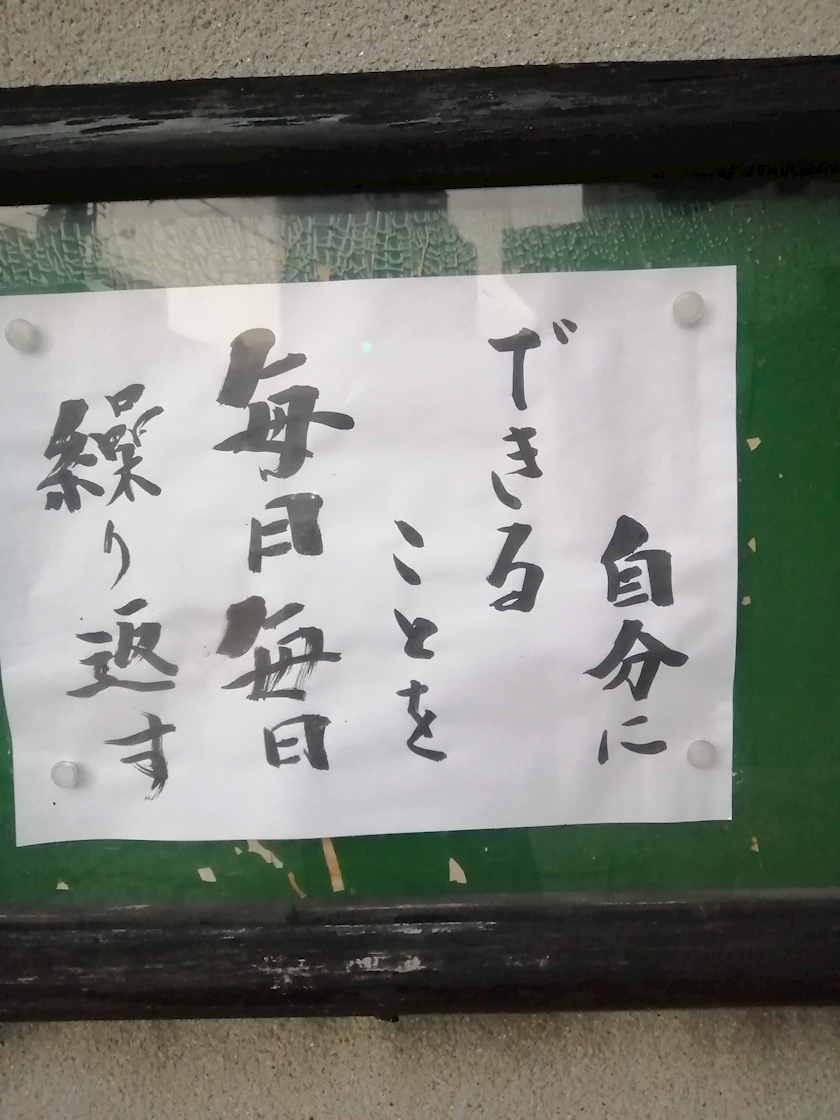 自分に
できる
ことを
毎日毎日
繰り返す